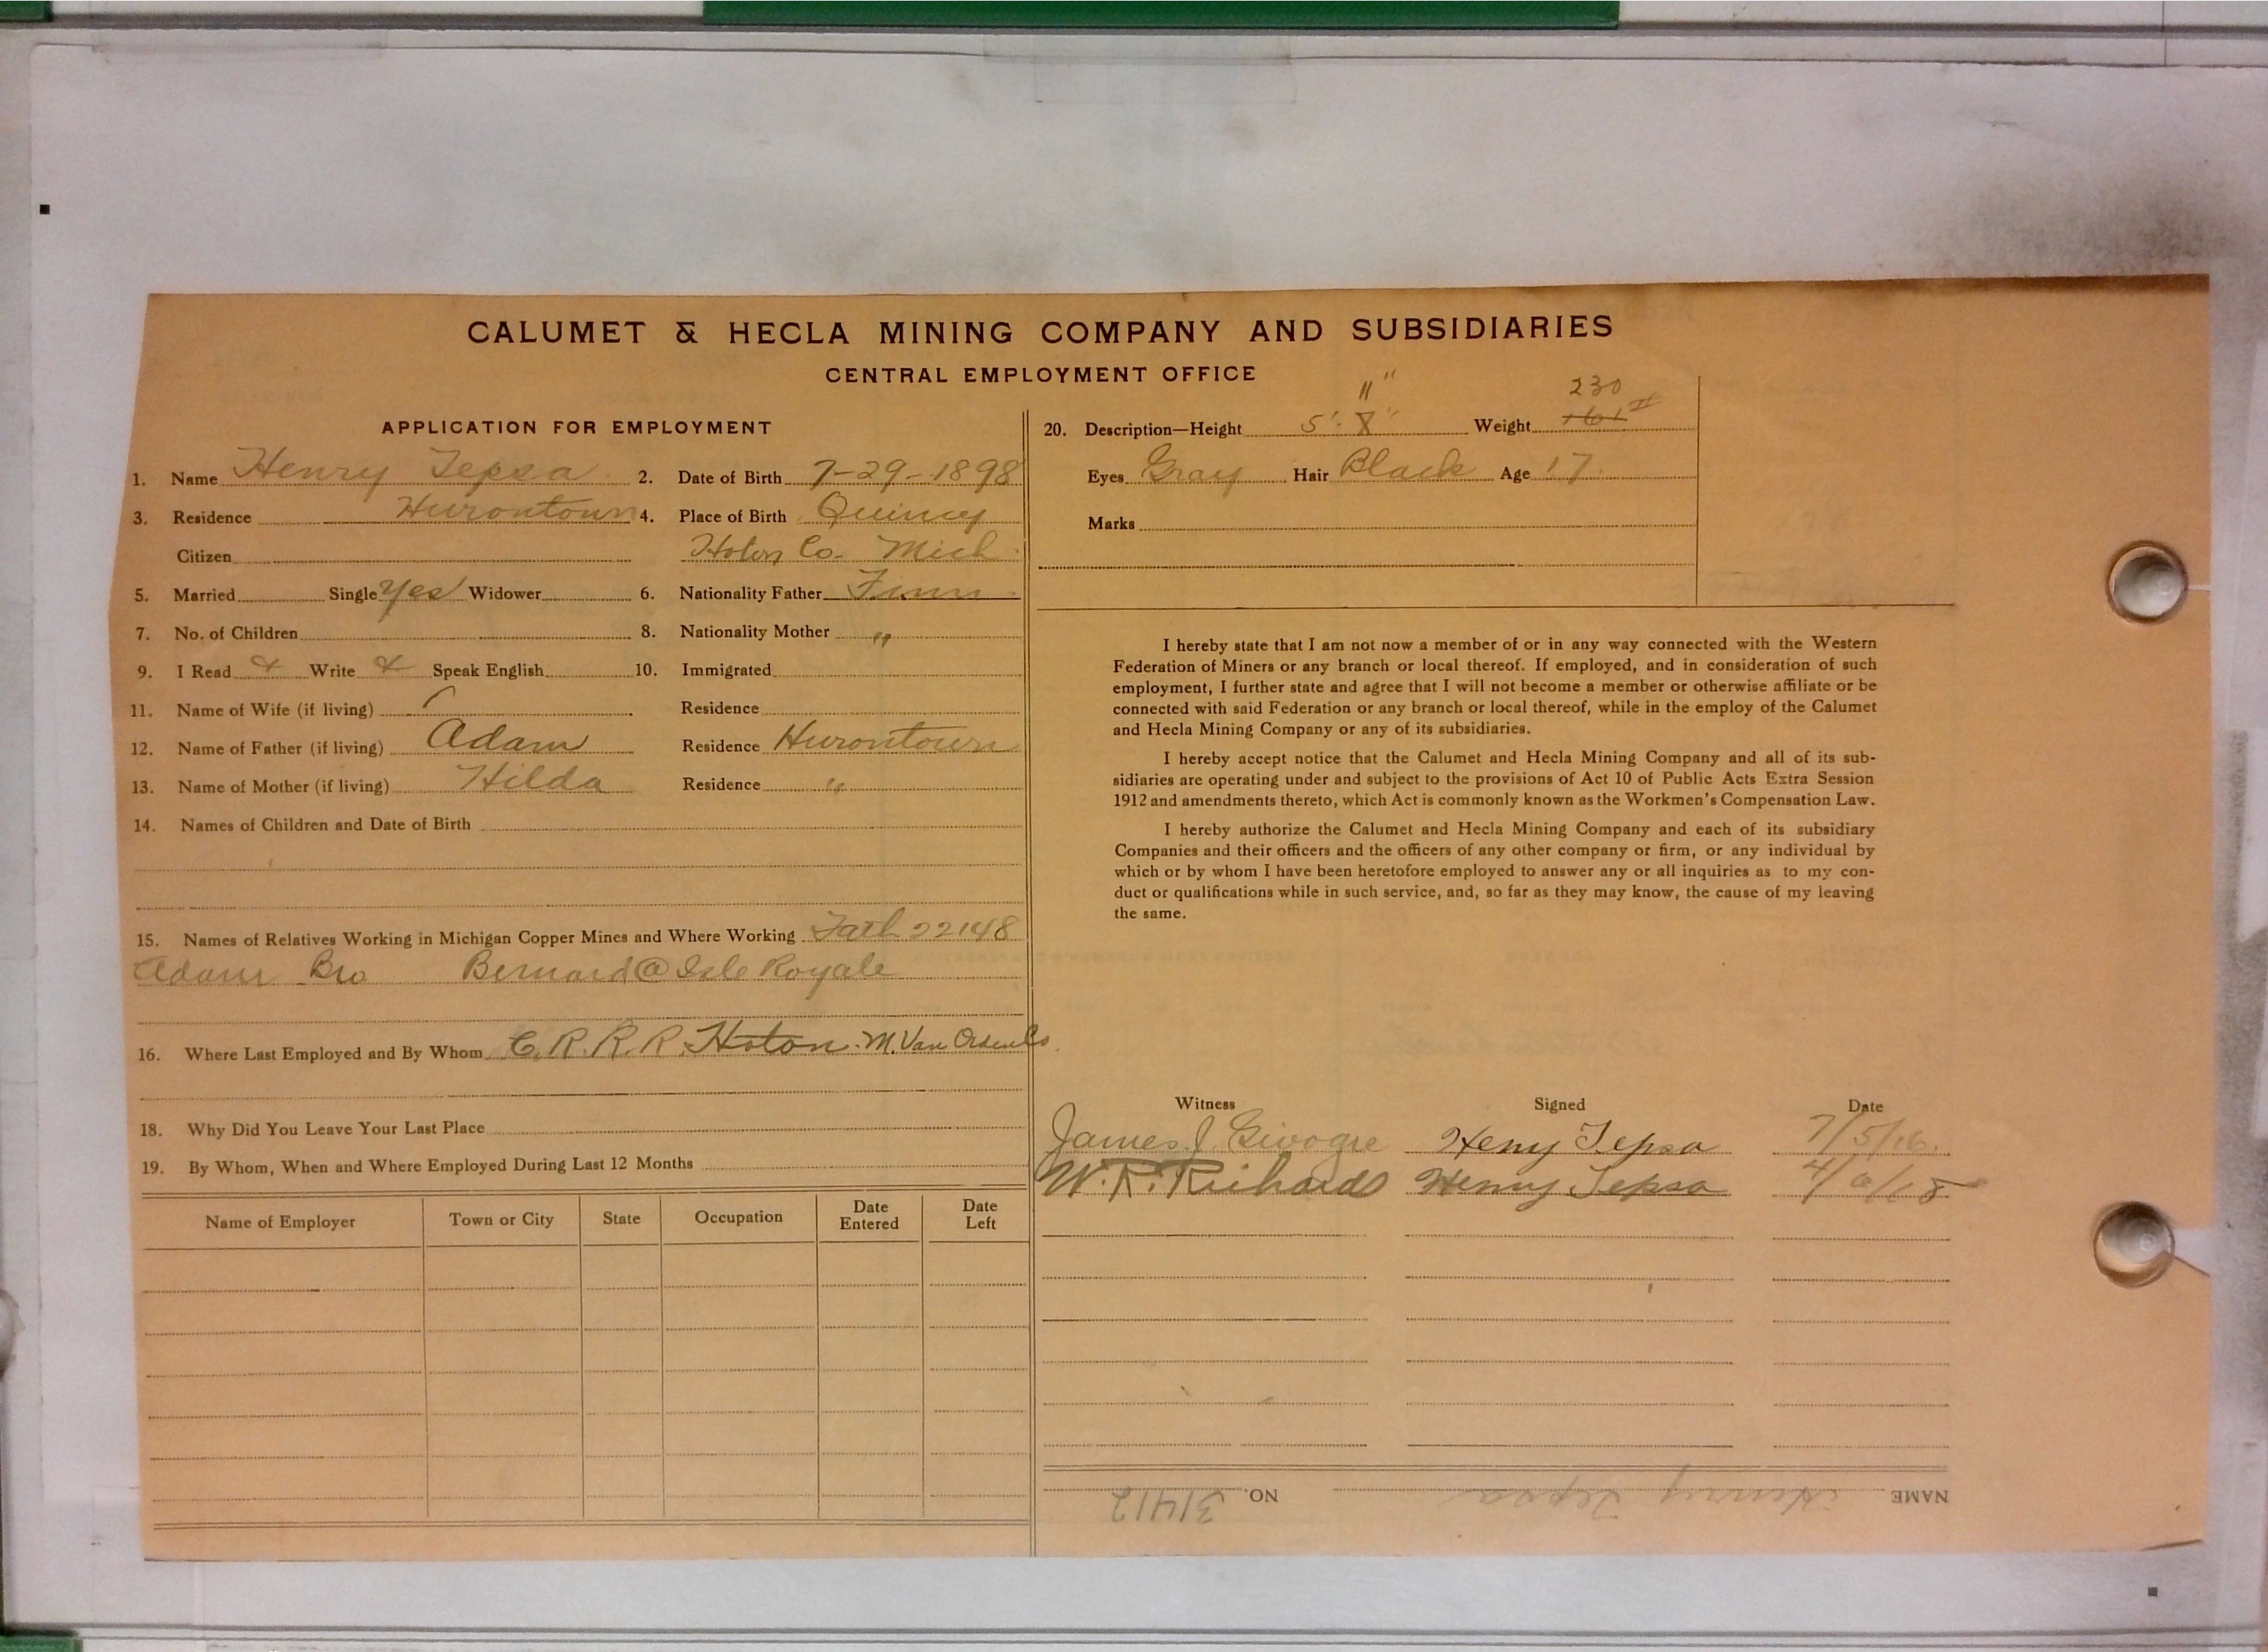 CALUMET & HECLA MINING COMPANY AND SUBSIDIARIES
CENTRAL EMPLOYMENT OFFICE
APPLICATION FOR EMPLOYMENT
1. Name Henry Tepsa 2. Date of Birth 7-29-1898
3. Residence Hurontown 4. Place of Birth Quincy
Citizen Hoton Co. Mich.
5. Married Single Yes Widower 6. Nationality Father Finn
7. No. of Children 8. Nationality Mother "
9. I Read & Write & Speak English 10. Immigrated
11. Name of Wife (if living) Residence
12. Name of Father (if living) Adam Residence Hurontown
13. Name of Mother (if living) Hilda Residence "
14. Names of Children and Date of Birth
15. Names of Relatives Working in Michigan Copper Mines and Where Working Fath 22148
Adam Bro Bernard @ Isle Royale
16. Where Last Employed and By Whom C.R.R.R. Hoton. M. Van Orden Co.
18. Why Did You Leave Your Last Place
19. By Whom, When and Where Employed During Last 12 Months
Name of Employer Town or City State Occupation Date Entered Date Left
11" 230
20. Description—Height 5'. 8" Weight 161#
Eyes Gray Hair Black Age 17.
Marks
I hereby state that I am not now a member of or in any way connected with the Western
Federation of Miners or any branch or local thereof. If employed, and in consideration of such
employment, I further state and agree that I will not become a member or otherwise affiliate or be
connected with said Federation or any branch or local thereof, while in the employ of the Calumet
and Hecla Mining Company or any of its subsidiaries.
I hereby accept notice that the Calumet and Hecla Mining Company and all of its sub-
sidiaries are operating under and subject to the provisions of Act 10 of Public Acts Extra Session
1912 and amendments thereto, which Act is commonly known as the Workmen's Compensation Law.
I hereby authorize the Calumet and Hecla Mining Company and each of its subsidiary
Companies and their officers and the officers of any other company or firm, or any individual by
which or by whom I have been heretofore employed to answer any or all inquiries as to my con-
duct or qualifications while in such service, and, so far as they may know, the cause of my leaving
the same.
Witness Signed Date
James J. Heny Tepsa 7/5/16.
W. R. Richards Henny Tepsa 4/6/18
NAME Henry Tepsa NO. 31412